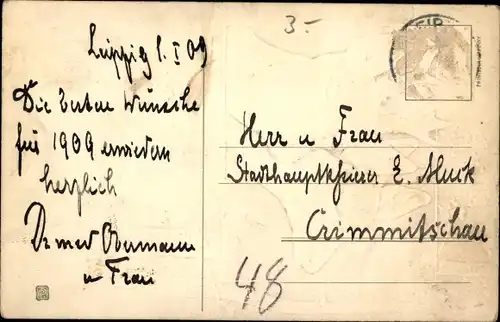 3.-
LEIP
Leipzig 1. I 09
Die besten Wünsche
für 1909 erwiedern
herzlich
Dr med Obermann
u Frau
Herr u Frau
E. Muck
Crimmitschau
48